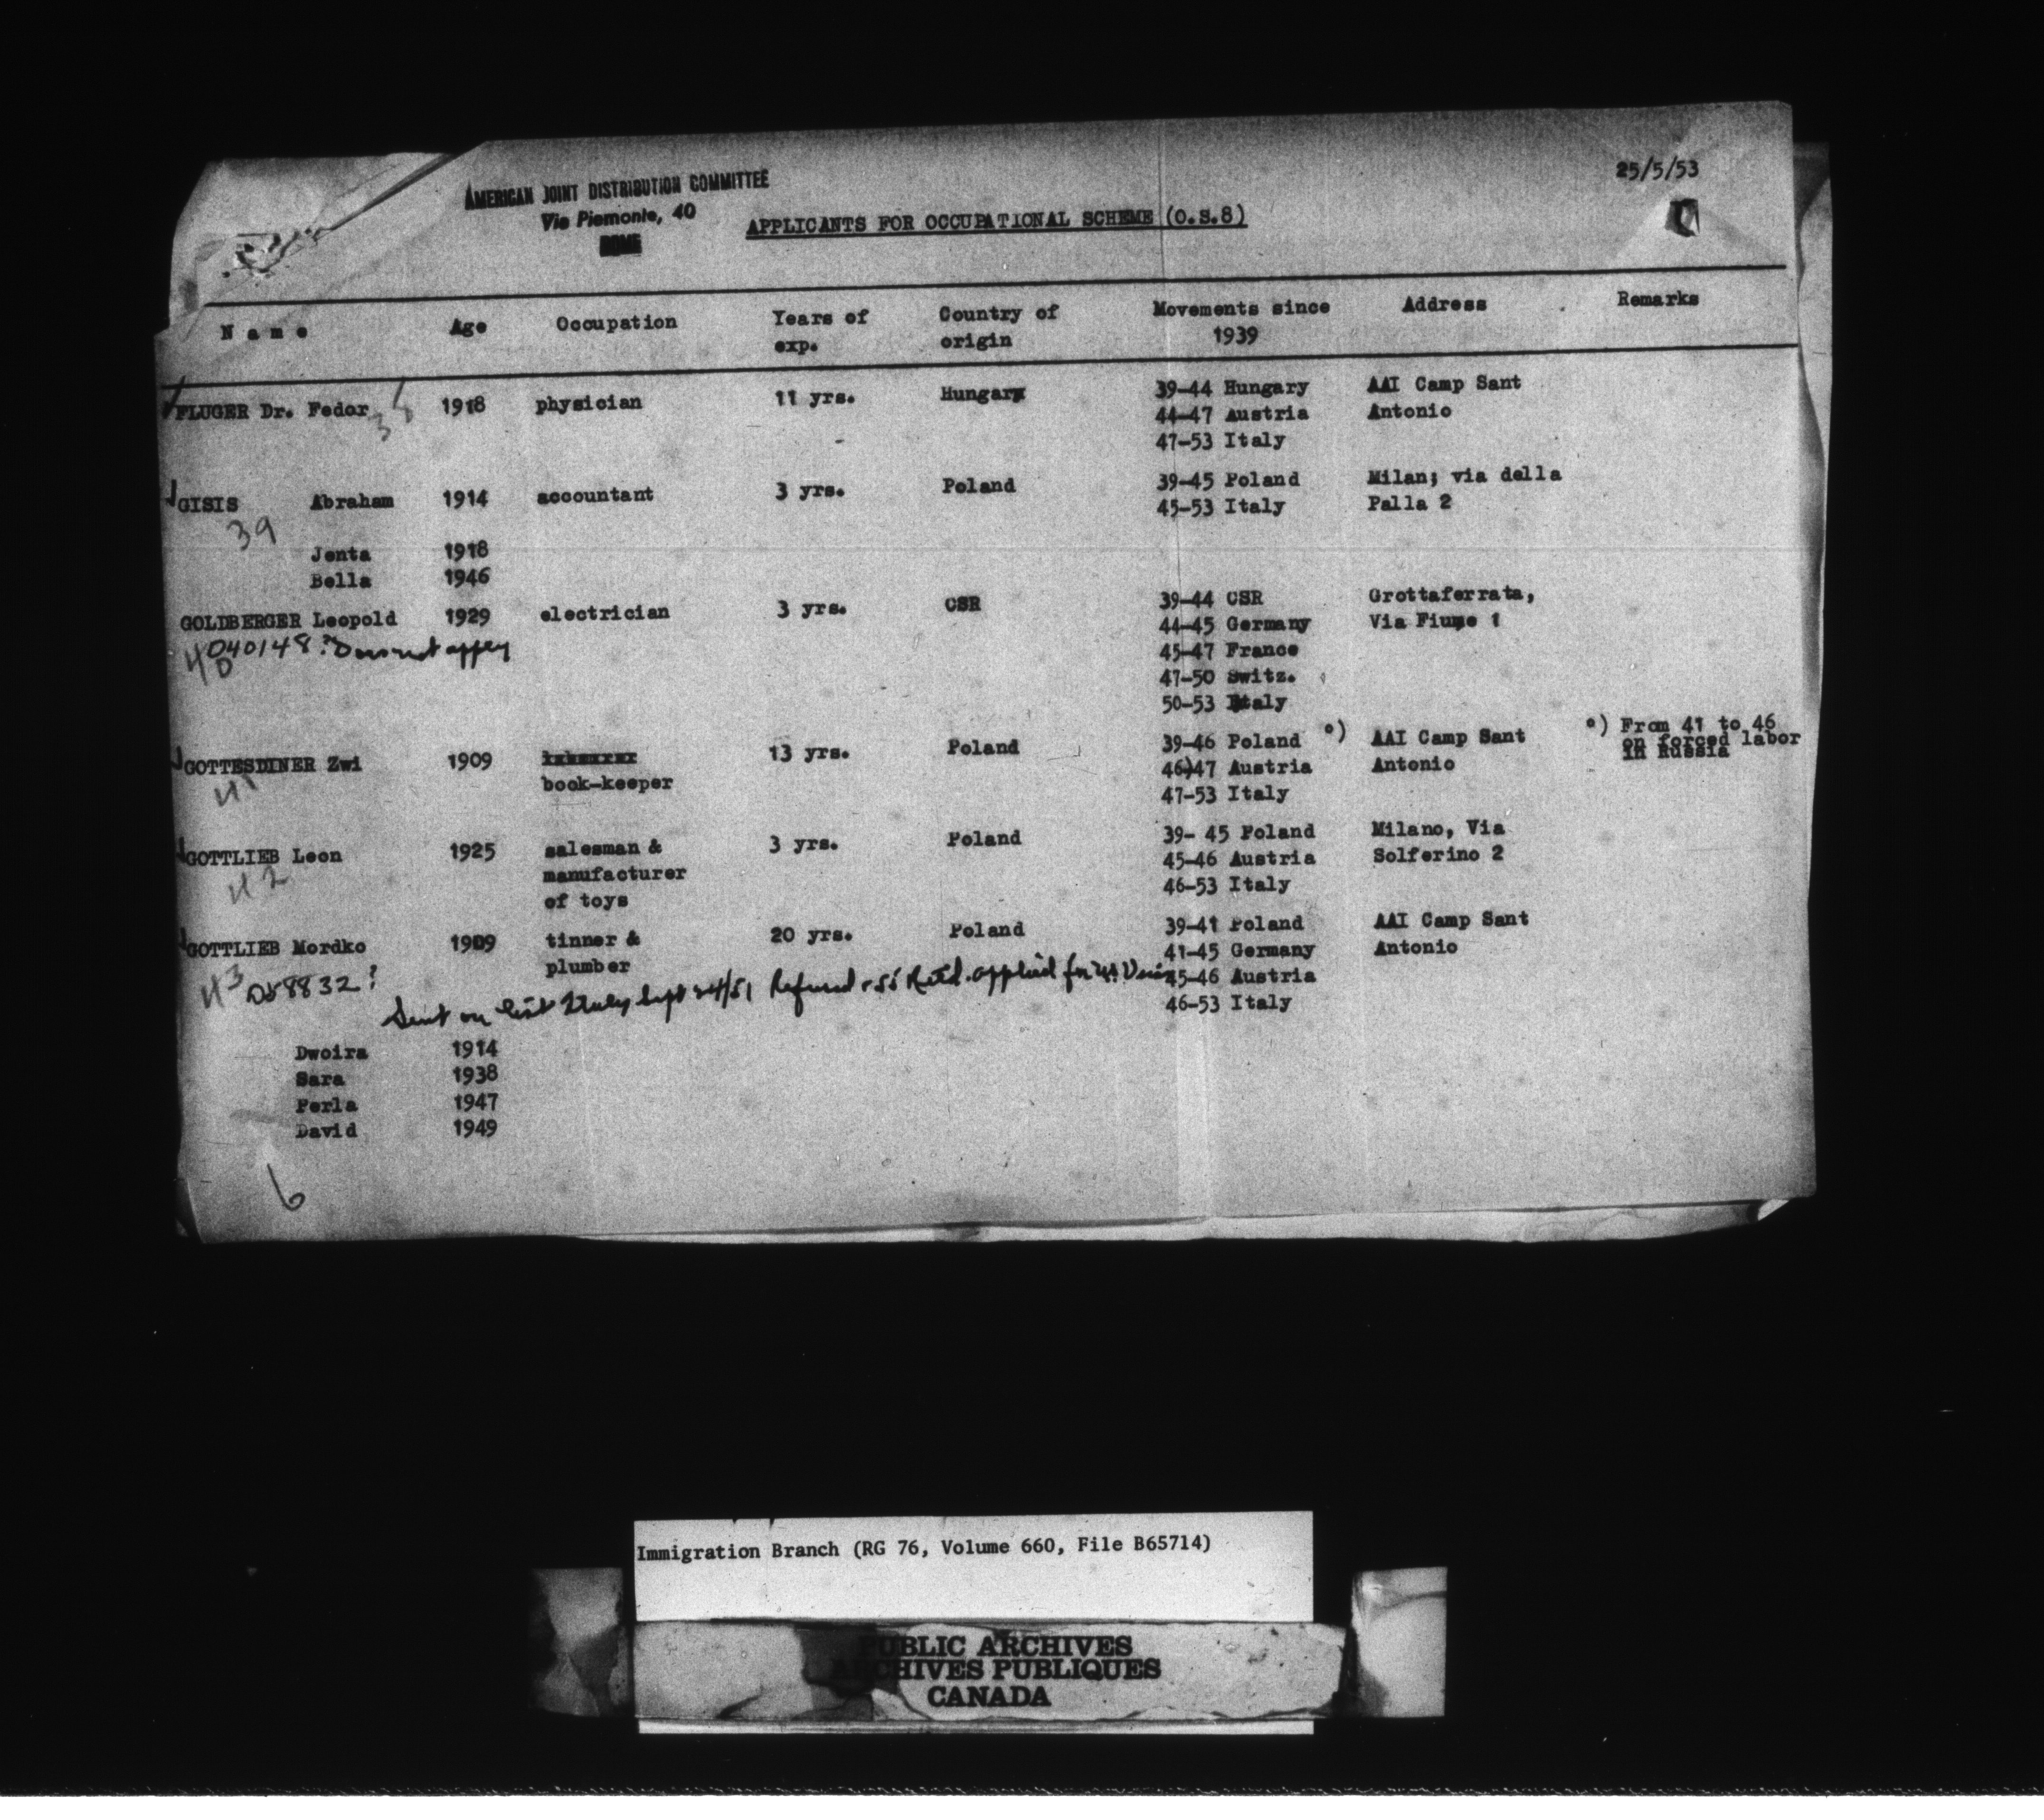 25/5/53
AMERICAN JOINT DISTRIBUTION COMMITTEE
Via Piemonte, 40
ROME
APPLICANTS FOR OCCUPATIONAL SCHEME (O.S.8)
Name Age Occupation Years of exp. Country of origin Movements since 1939 Address Remarks
FLUGER Dr. Fedor 1918 physician 11 yrs. Hungary 39-44 Hungary AAI Camp Sant
38 44-47 Austria Antonio
47-53 Italy
GISIS Abraham 1914 accountant 3 yrs. Poland 39-45 Poland Milan; via della
39 45-53 Italy Palla 2
Jenta 1918
Bella 1946
GOLDBERGER Leopold 1929 electrician 3 yrs. CSR 39-44 CSR Grottaferrata,
40 D40148? Does not apply 44-45 Germany Via Fiume 1
45-47 France
47-50 Switz.
50-53 Italy
GOTTESDINER Zwi 1909 13 yrs. Poland 39-46 Poland °) AAI Camp Sant °) From 41 to 46
41 book-keeper 46-47 Austria Antonio on forced labor
47-53 Italy in Russia
GOTTLIEB Leon 1925 salesman & 3 yrs. Poland 39- 45 Poland Milano, Via
42 manufacturer 45-46 Austria Solferino 2
of toys 46-53 Italy
GOTTLIEB Mordko 1909 tinner & 20 yrs. Poland 39-41 Poland AAI Camp Sant
plumber 41-45 Germany Antonio
43 D58832? 45-46 Austria
Sent on list Italy Sept 24/51 Refused applied for
46-53 Italy
Dwoira 1914
Sara 1938
Perla 1947
David 1949
6
Immigration Branch (RG 76, Volume 660, File B65714)
PUBLIC ARCHIVES
ARCHIVES PUBLIQUES
CANADA